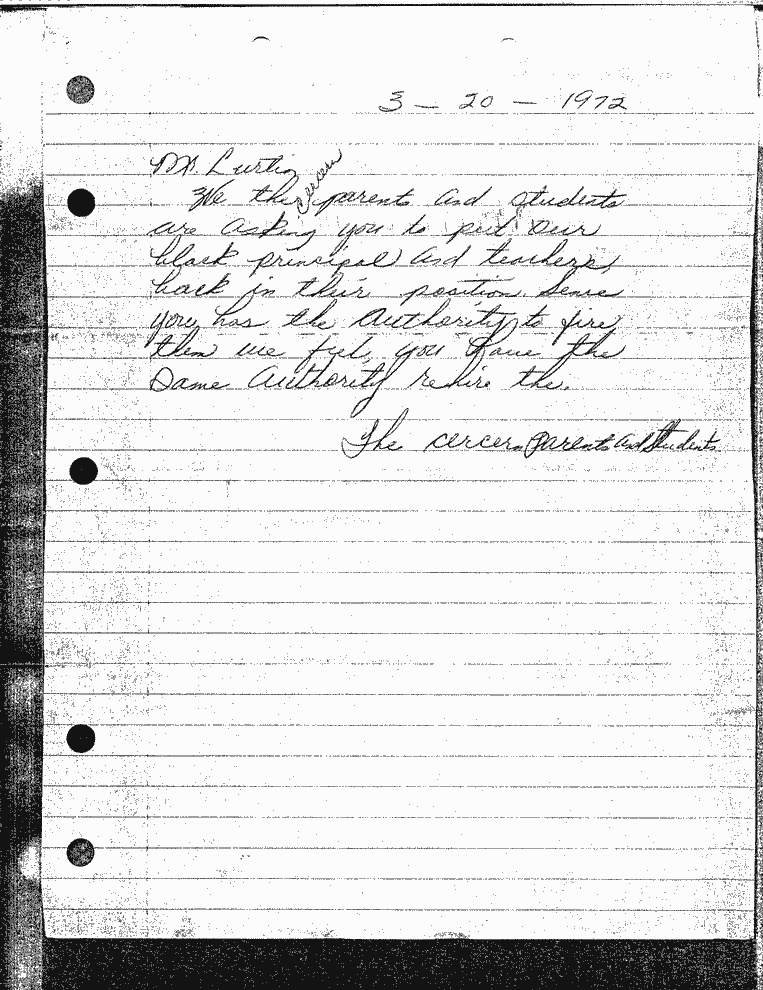 3 - 20 - 1972
Mr. Curtis
We the cercern parents and students
are asking you to put our
black principal and teachers,
back in their position. Sence
you has the Authority to fire
them we feel, you have the
Same Authority rehire the.
The cercern Parents and Students